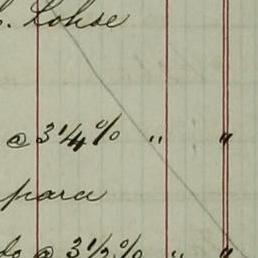 . Lohse
@ 3 1/4 % " "
para
do @ 3 1/2 % " "